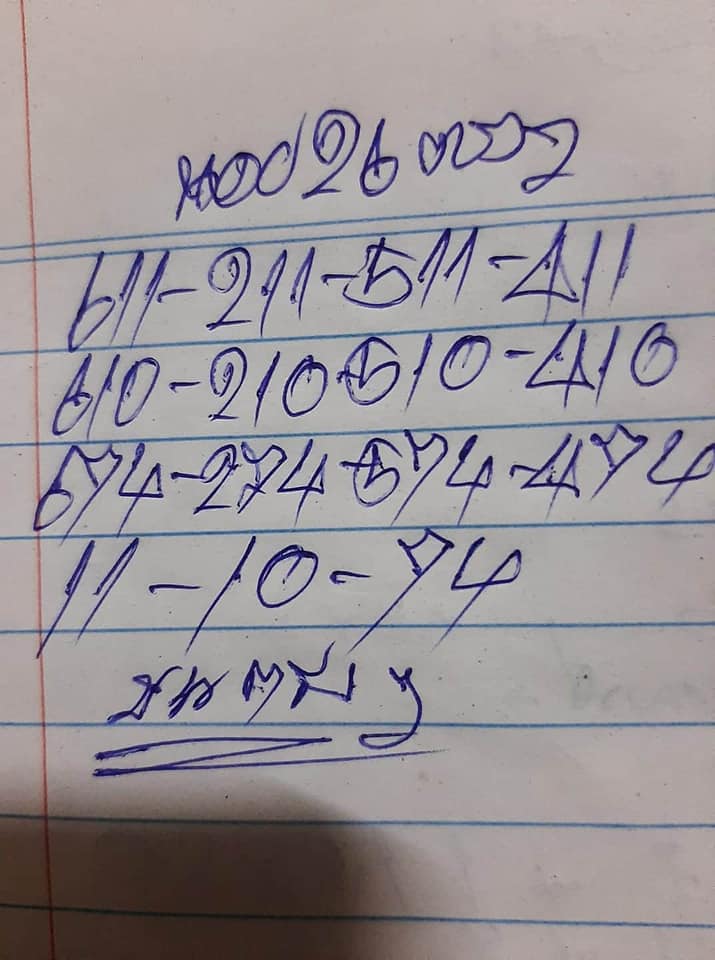 26
611-211-511-411
610-210-510-410
674-274-574-474
11-10-74